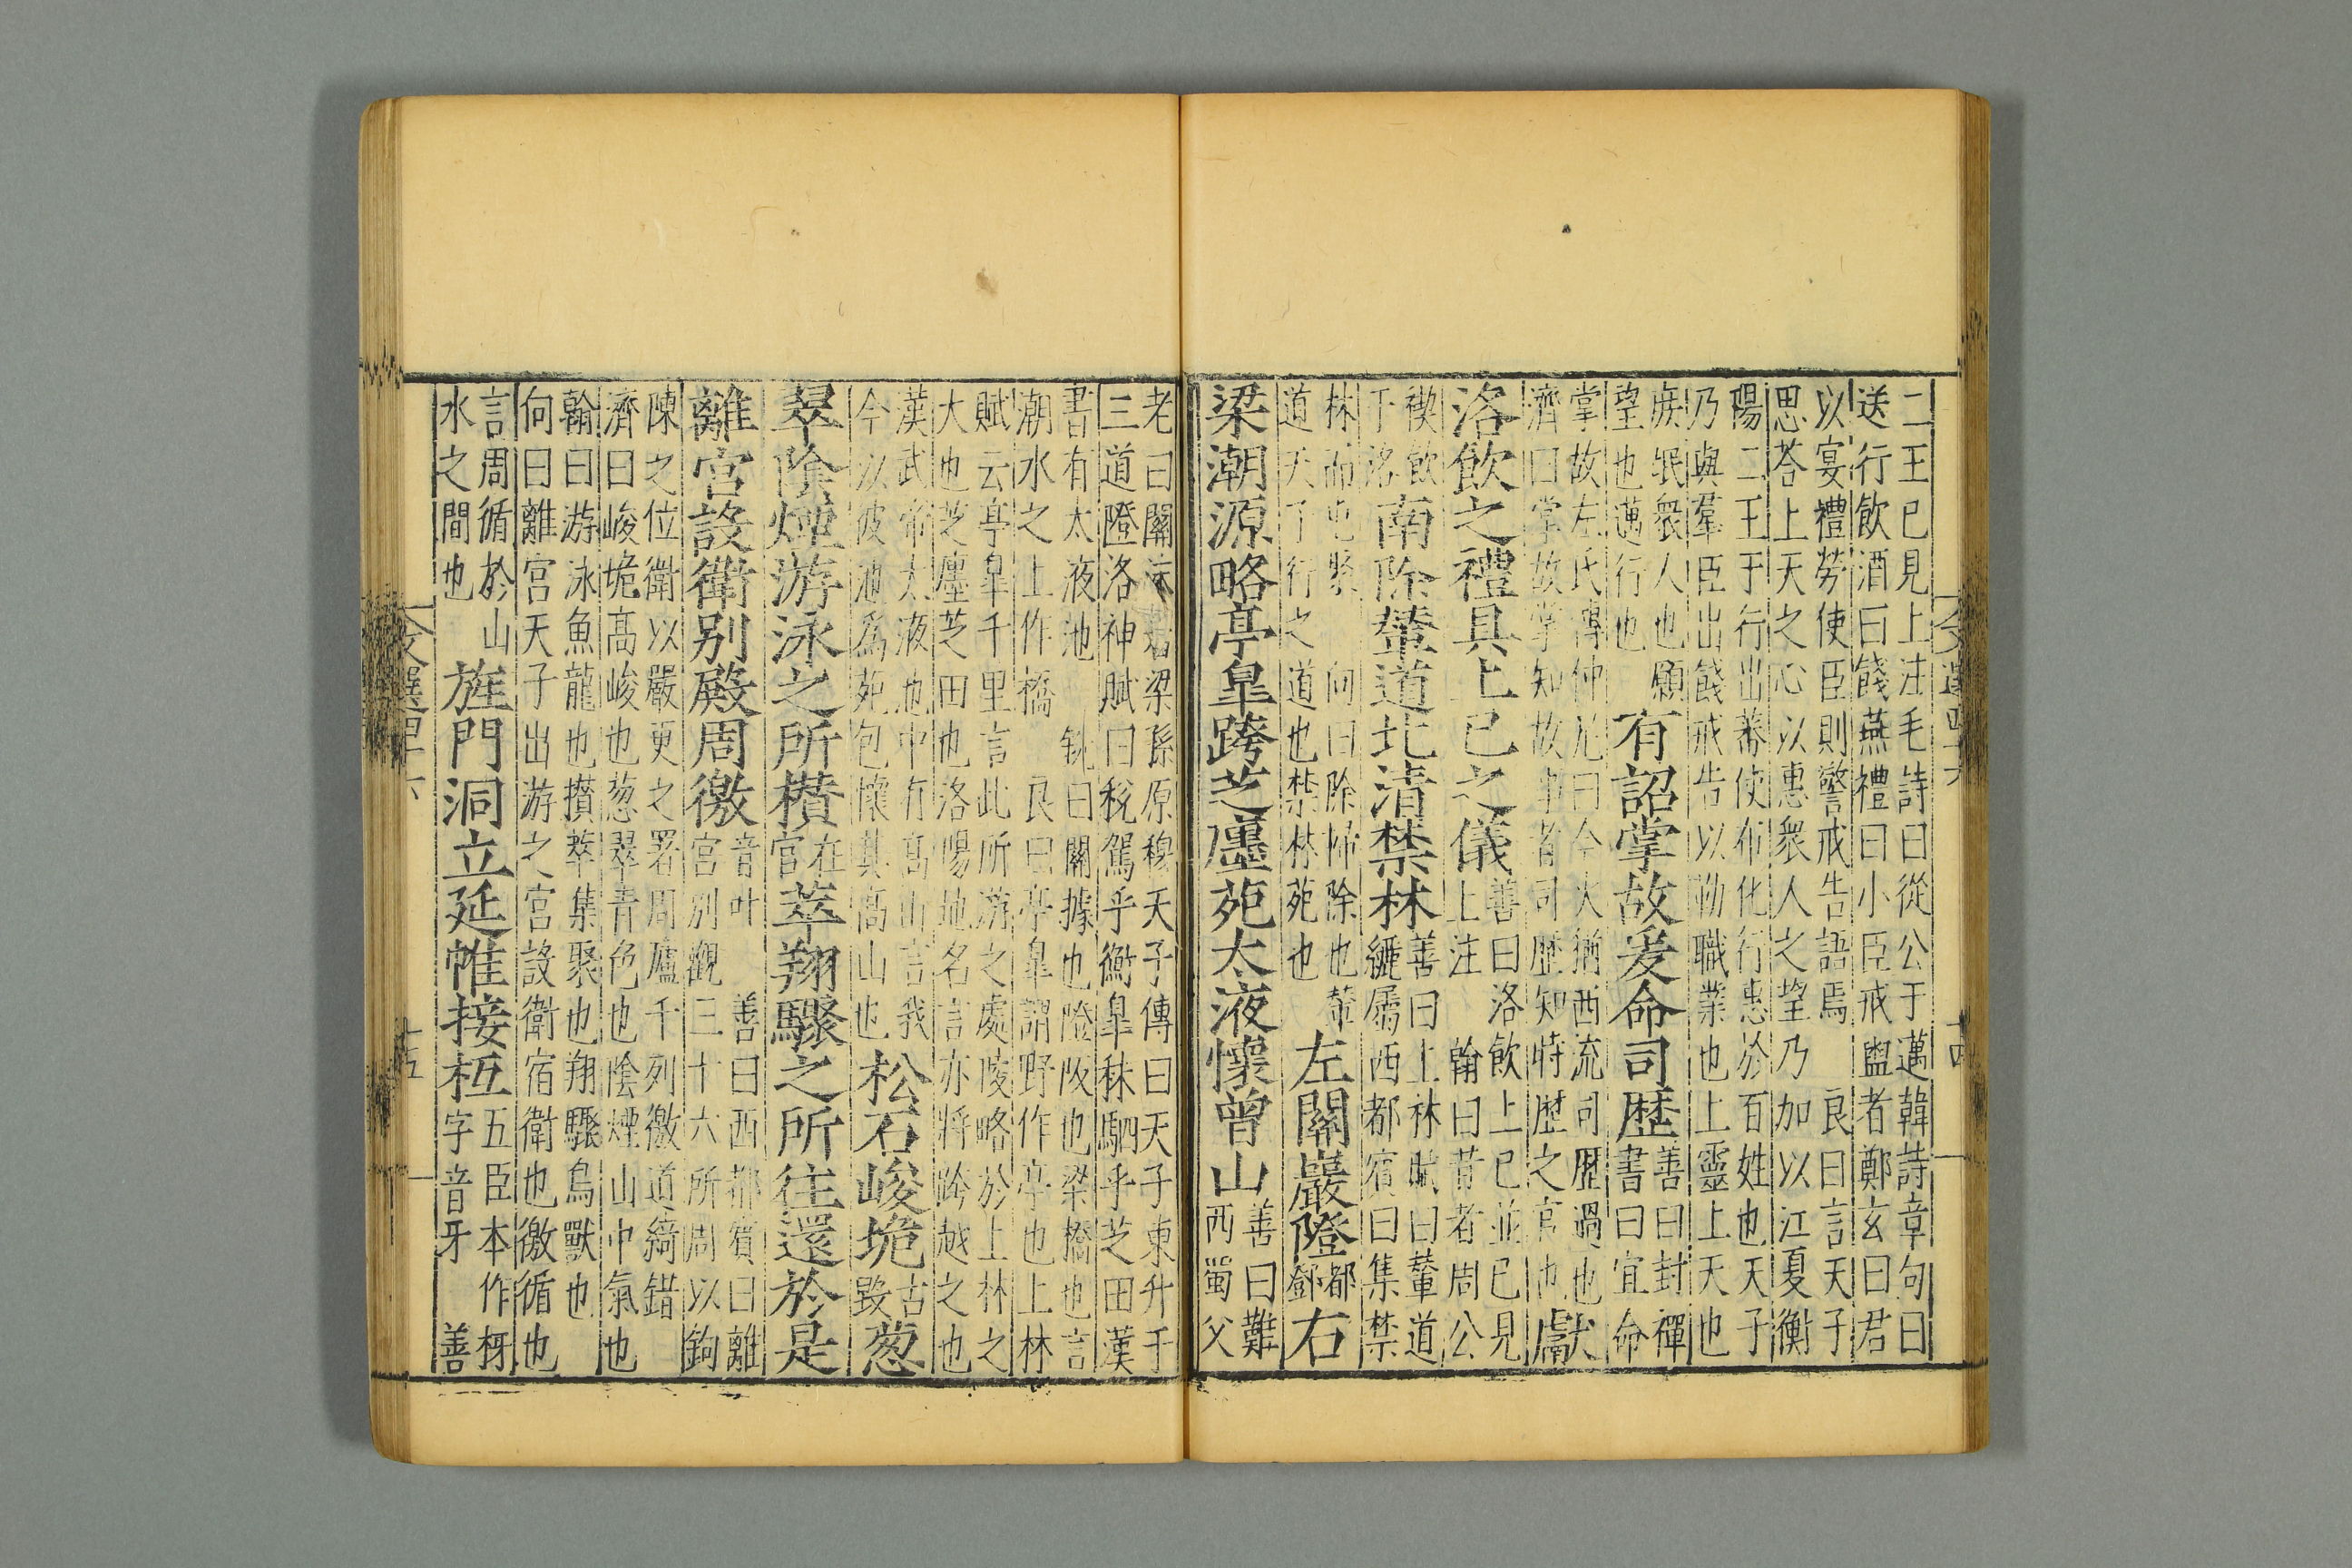 二王已見上注毛詩曰從公于邁韓詩章句曰
送行飲酒曰餞燕禮曰小臣戒盥者鄭玄曰君
以宴禮勞使臣則警戒告語焉 良曰言天子
思荅上天之心以惠衆人之望乃加以江夏衡
陽二王于行出蕃使布化行惠於百姓也天子
乃與羣臣出餞戒告以勑職業也上靈上天也
庻氓衆人也願
望也邁行也
有詔掌故爰命司歴
善曰封禪
書曰宜命
掌故左氏傳仲尼曰今火猶西流司歴過也
濟曰掌故掌知故事者司歴知時歴之官也
獻
洛飲之禮具上巳之儀
善曰洛飲上巳並已見
上注 翰曰昔者周公
禊飲
于洛
南除輦道北清禁林
善曰上林賦曰輦道
纚屬西都賓曰集禁
林而屯聚 向曰除掃除也輦
道天子行之道也禁林苑也
左關巖隥
都
鄧
右
梁潮源略亭皐跨芝廛苑太液懷曾山
善曰難
西蜀父
老曰關沬若梁孫原穆天子傳曰天子東升于
三道隥洛神賦曰稅駕乎衡皐秣駟乎芝田漢
書有太液池 銑曰關據也隥阪也梁橋也言
潮水之上作橋 良曰亭皐謂野作亭也上林
賦云亭皐千里言此所游之處陵略於上林之
大也芝廛芝田也洛陽地名言亦將跨越之也
漢武帝太液池中有髙山言我
今以彼池爲苑包懷其髙山也
松石峻垝
古
毀
葱
翠陰煙游泳之所攢
在
官
萃翔驟之所往還於是
離宮設衛别殿周徼
音叶
宮別觀三十六所周以鉤
善曰西都賓曰離
陳之位衛以嚴更之署周廬千列徼道綺錯
濟曰峻垝髙峻也葱翠青色也陰煙山中氣也
翰曰游泳魚龍也攢萃集聚也翔驟鳥獸也
向曰離宮天子出游之宮設衛宿衛也徼循也
言周循於山
水之間也
旌門洞立延帷接枑
五臣本作枒
字音牙 善
文選四十六
十四
文選四十六
十五